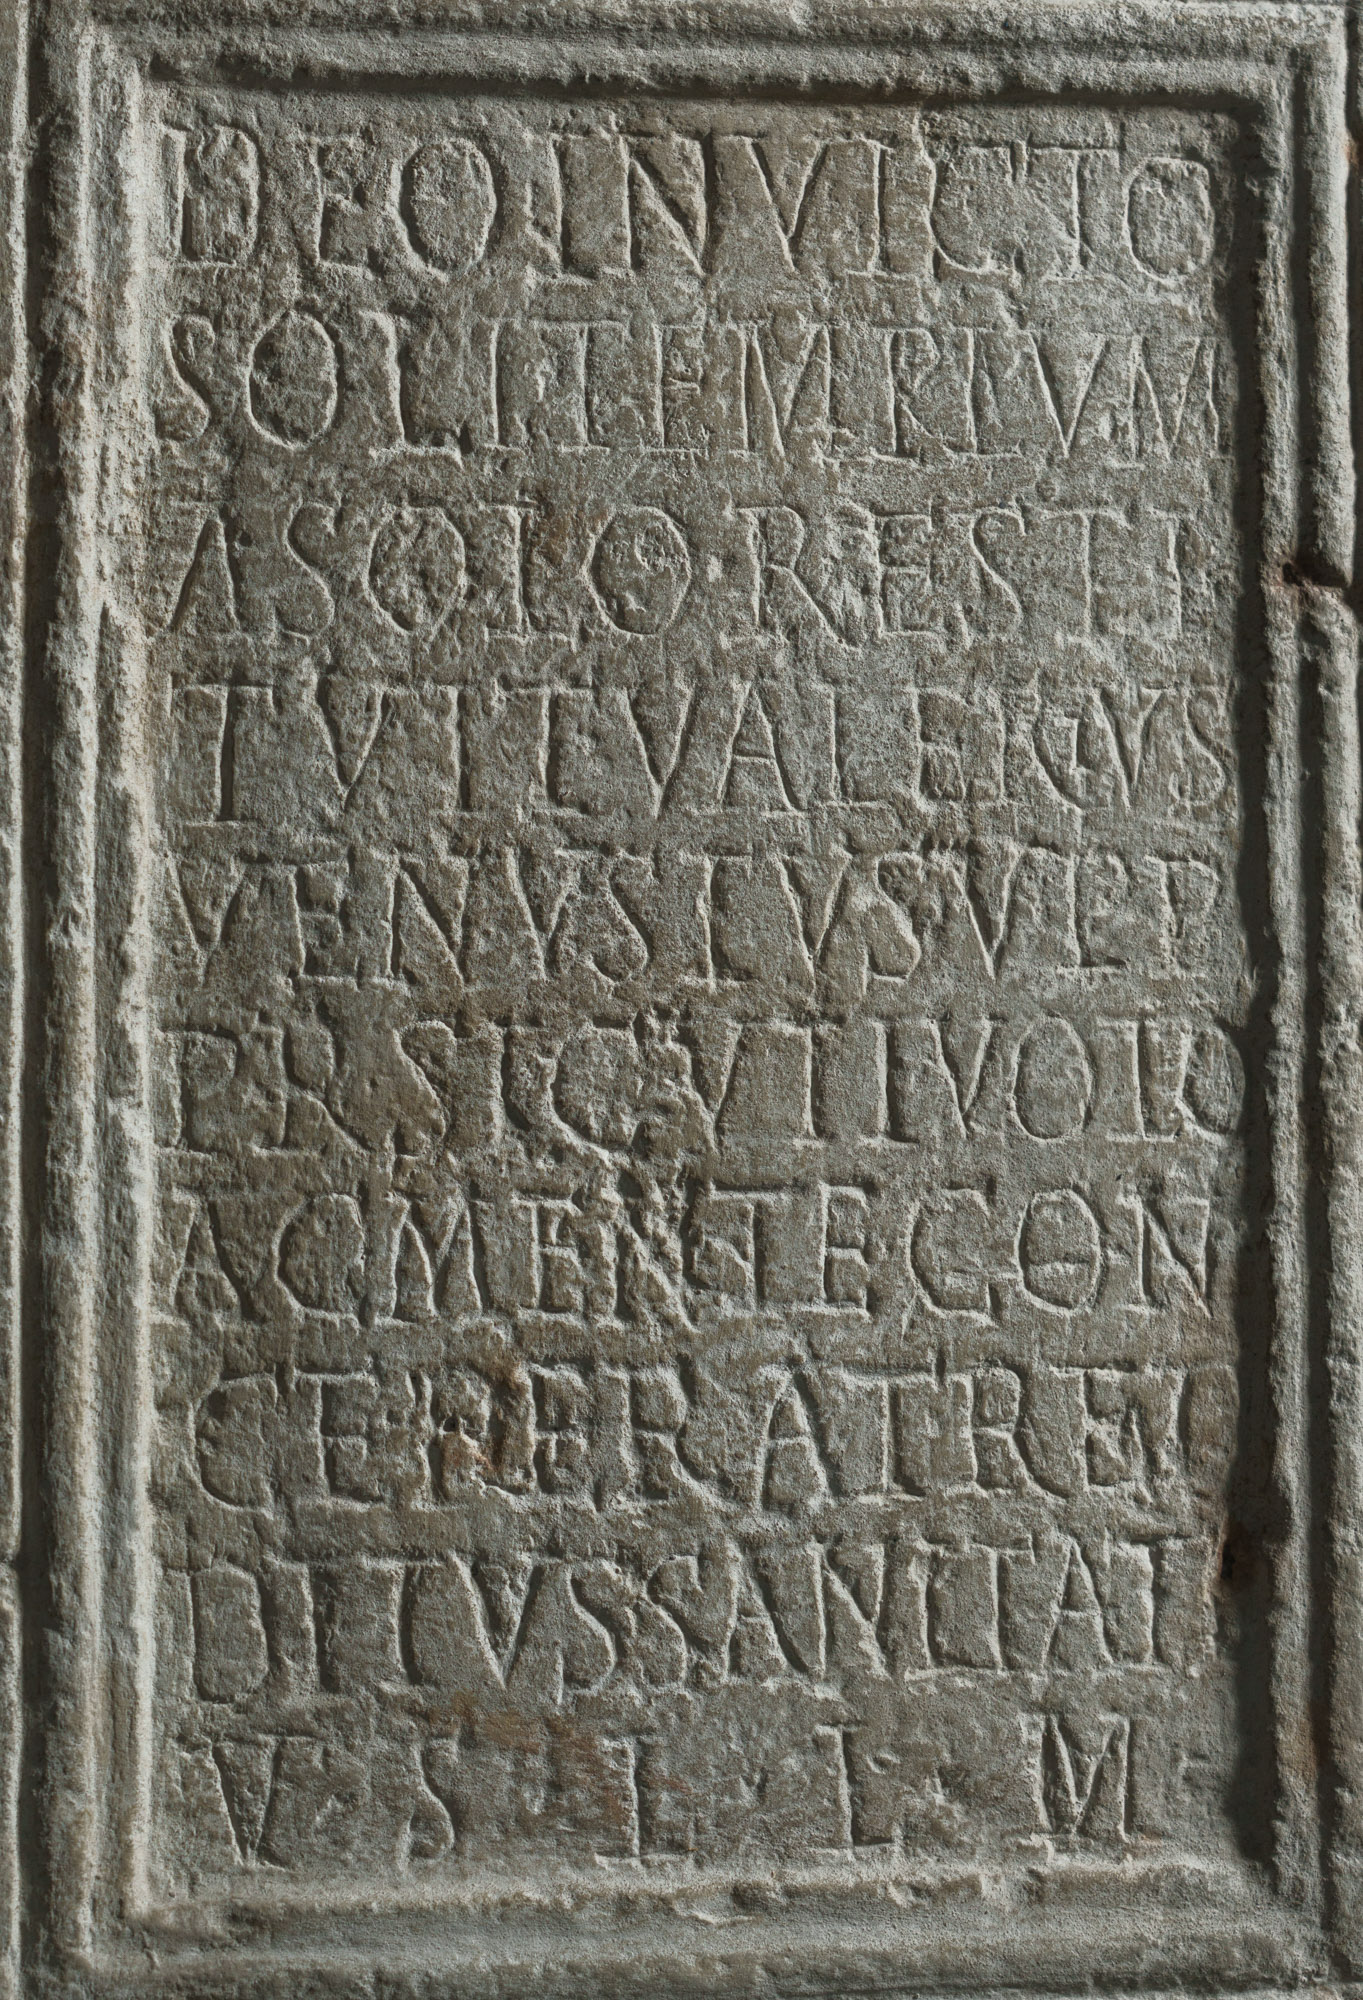 DEO INVICTO
SOLI TEMPLVM
A SOLO RESTI
TVIT VALERIVS
VENVSTVS V P P
PR SICVTI VOTO
AC MENTE CON
CEPERAT RED
DITVS SANITATI
V S L L M